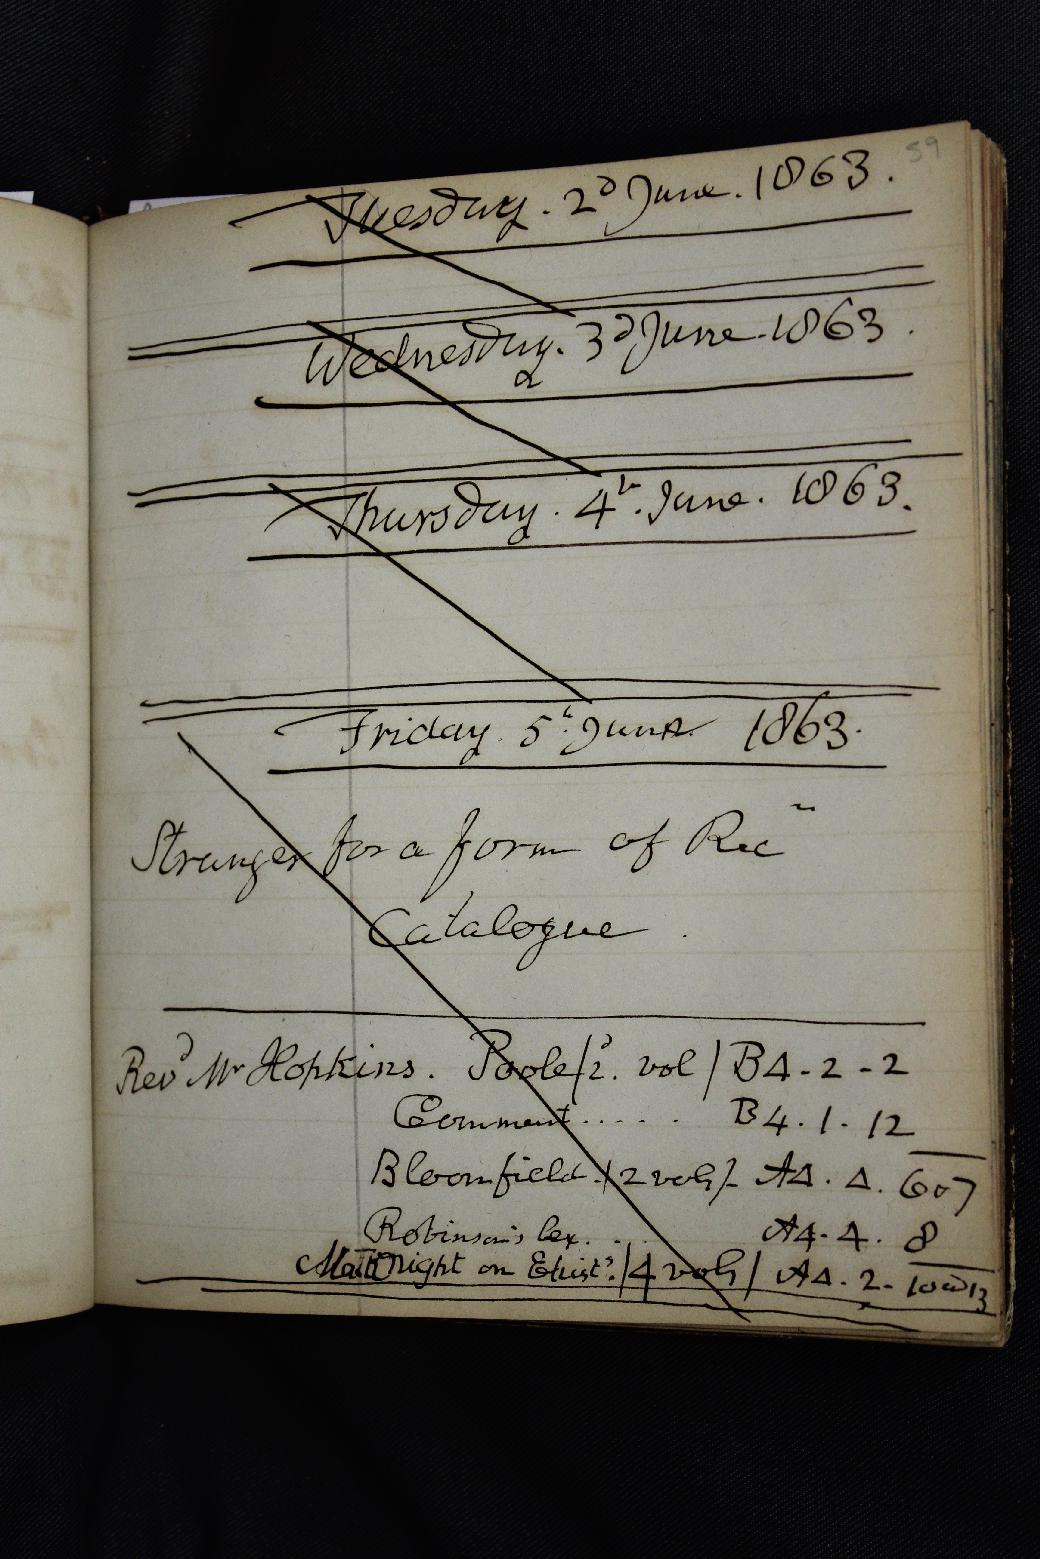 59
Tuesday. 2d June. 1863.
Wednesday. 3d June. 1863.
Thursday. 4h. June. 1863.
Friday. 5h June. 1863.
Stranger for a form of Rec
Catalogue.
Revd Mr Hopkins. Poole / 2d. vol / B4-2-2
Comment...... B4.1.12
Bloomfield / 2 vols / A4.4. 6 o 7
Robinson's lex. .. A4.4. 8
on Epists. / 4 vols / A4.2-10 13